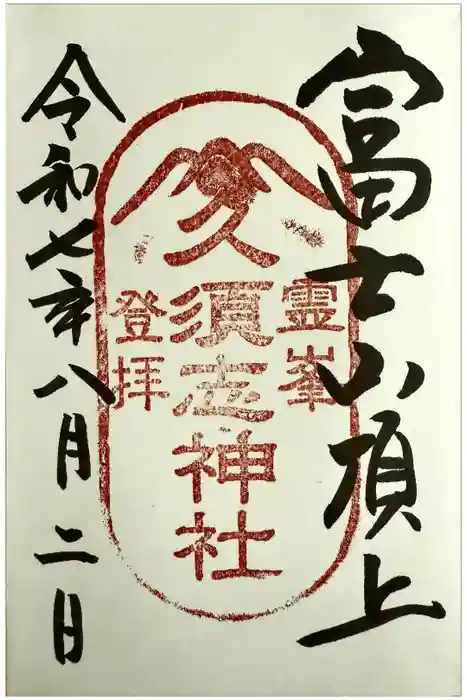 富士山頂上
霊峯
久須志神社
登拝
令和七年八月二日